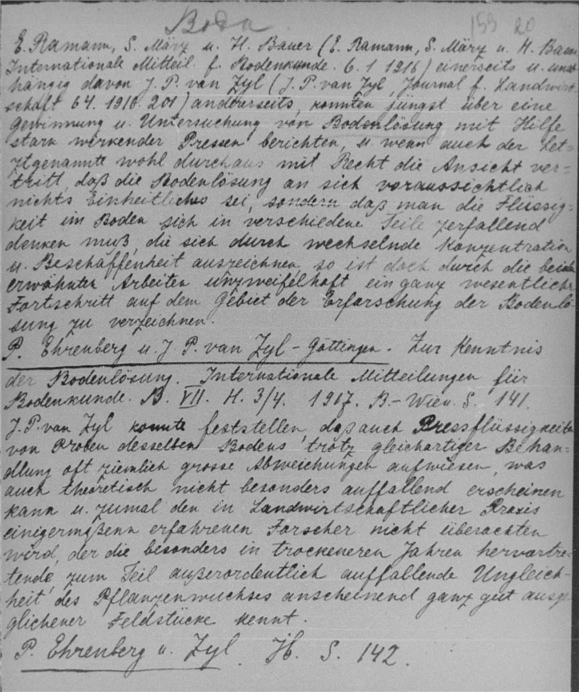 Boda
159 20
E. Ramann, S. März u. H. Bauer (E. Ramann, S. März u. H. Bauer
Internationale Mitteil. f. Bodenkunde. 6. 1 1916) einerseits u. unab
hängig davon J. P. van Zyl (J. P. van Zyl, Journal f. Landwirt
schaft 64. 1916. 201) andererseits, konnten jüngst über eine
Gewinnung u. Untersuchung von Bodenlösung mit Hilfe
stark wirkender Pressen berichten, u. wenn auch der Let-
ztgenannte wohl durchaus mit Recht die Ansicht ver-
tritt, daß die Bodenlösung an sich voraussichtlich
nichts Einheitliches sei, sondern daß man die Flüssig-
keit im Boden sich in verschiedene Teile zerfallend
denken muß, die sich durch wechselnde Konzentration
u. Beschaffenheit auszeichnen, so ist doch durch die beiden
erwähnten Arbeiten unzweifelhaft ein ganz wesentlicher
Fortschritt auf dem Gebiet der Erforschung der Bodenlö-
sung zu verzeichnen.
P. Ehrenberg u. J. P. van Zyl - Göttingen. Zur Kenntnis
der Bodenlösung. Internationale Mitteilungen für
Bodenkunde. B. VII. H. 3/4. 1917. B.-Wien. S. 141.
J. P. van Zyl konnte feststellen, das auch Pressflüssigkeiten
von Proben desselben Bodens trotz gleichartiger Behan-
dlung oft ziemlich grosse Abweichungen aufwiesen, was
auch theoretisch nicht besonders auffallend erscheinen
kann u. zumal den in Landwirtschaftlicher Praxis
einigermaßenn erfahrenen Forscher nicht überraschen
wird, der die besonders in trockeneren Jahren hervortre-
tende, zum Teil außerordentlich auffallende Ungleich-
heit des Pflanzenwuchses anscheinend ganz gut ausge
glichener Feldstücke kennt.
P. Ehrenberg u. Zyl. S. 142.